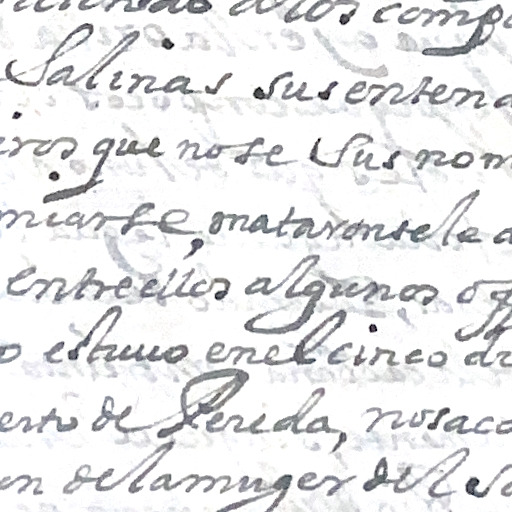 a los comp
Salinas sus entend
iros que no se sus nom
miarse, mataronsele a
entre ellos algunos of
o estuuo en el cinco di
erto de Perida, no saco
on de la muger del Sa